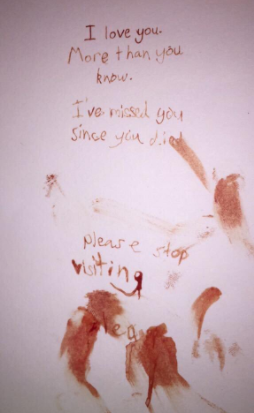 I love you.
More than you
know.
I've missed you
since you died
please stop
visiting